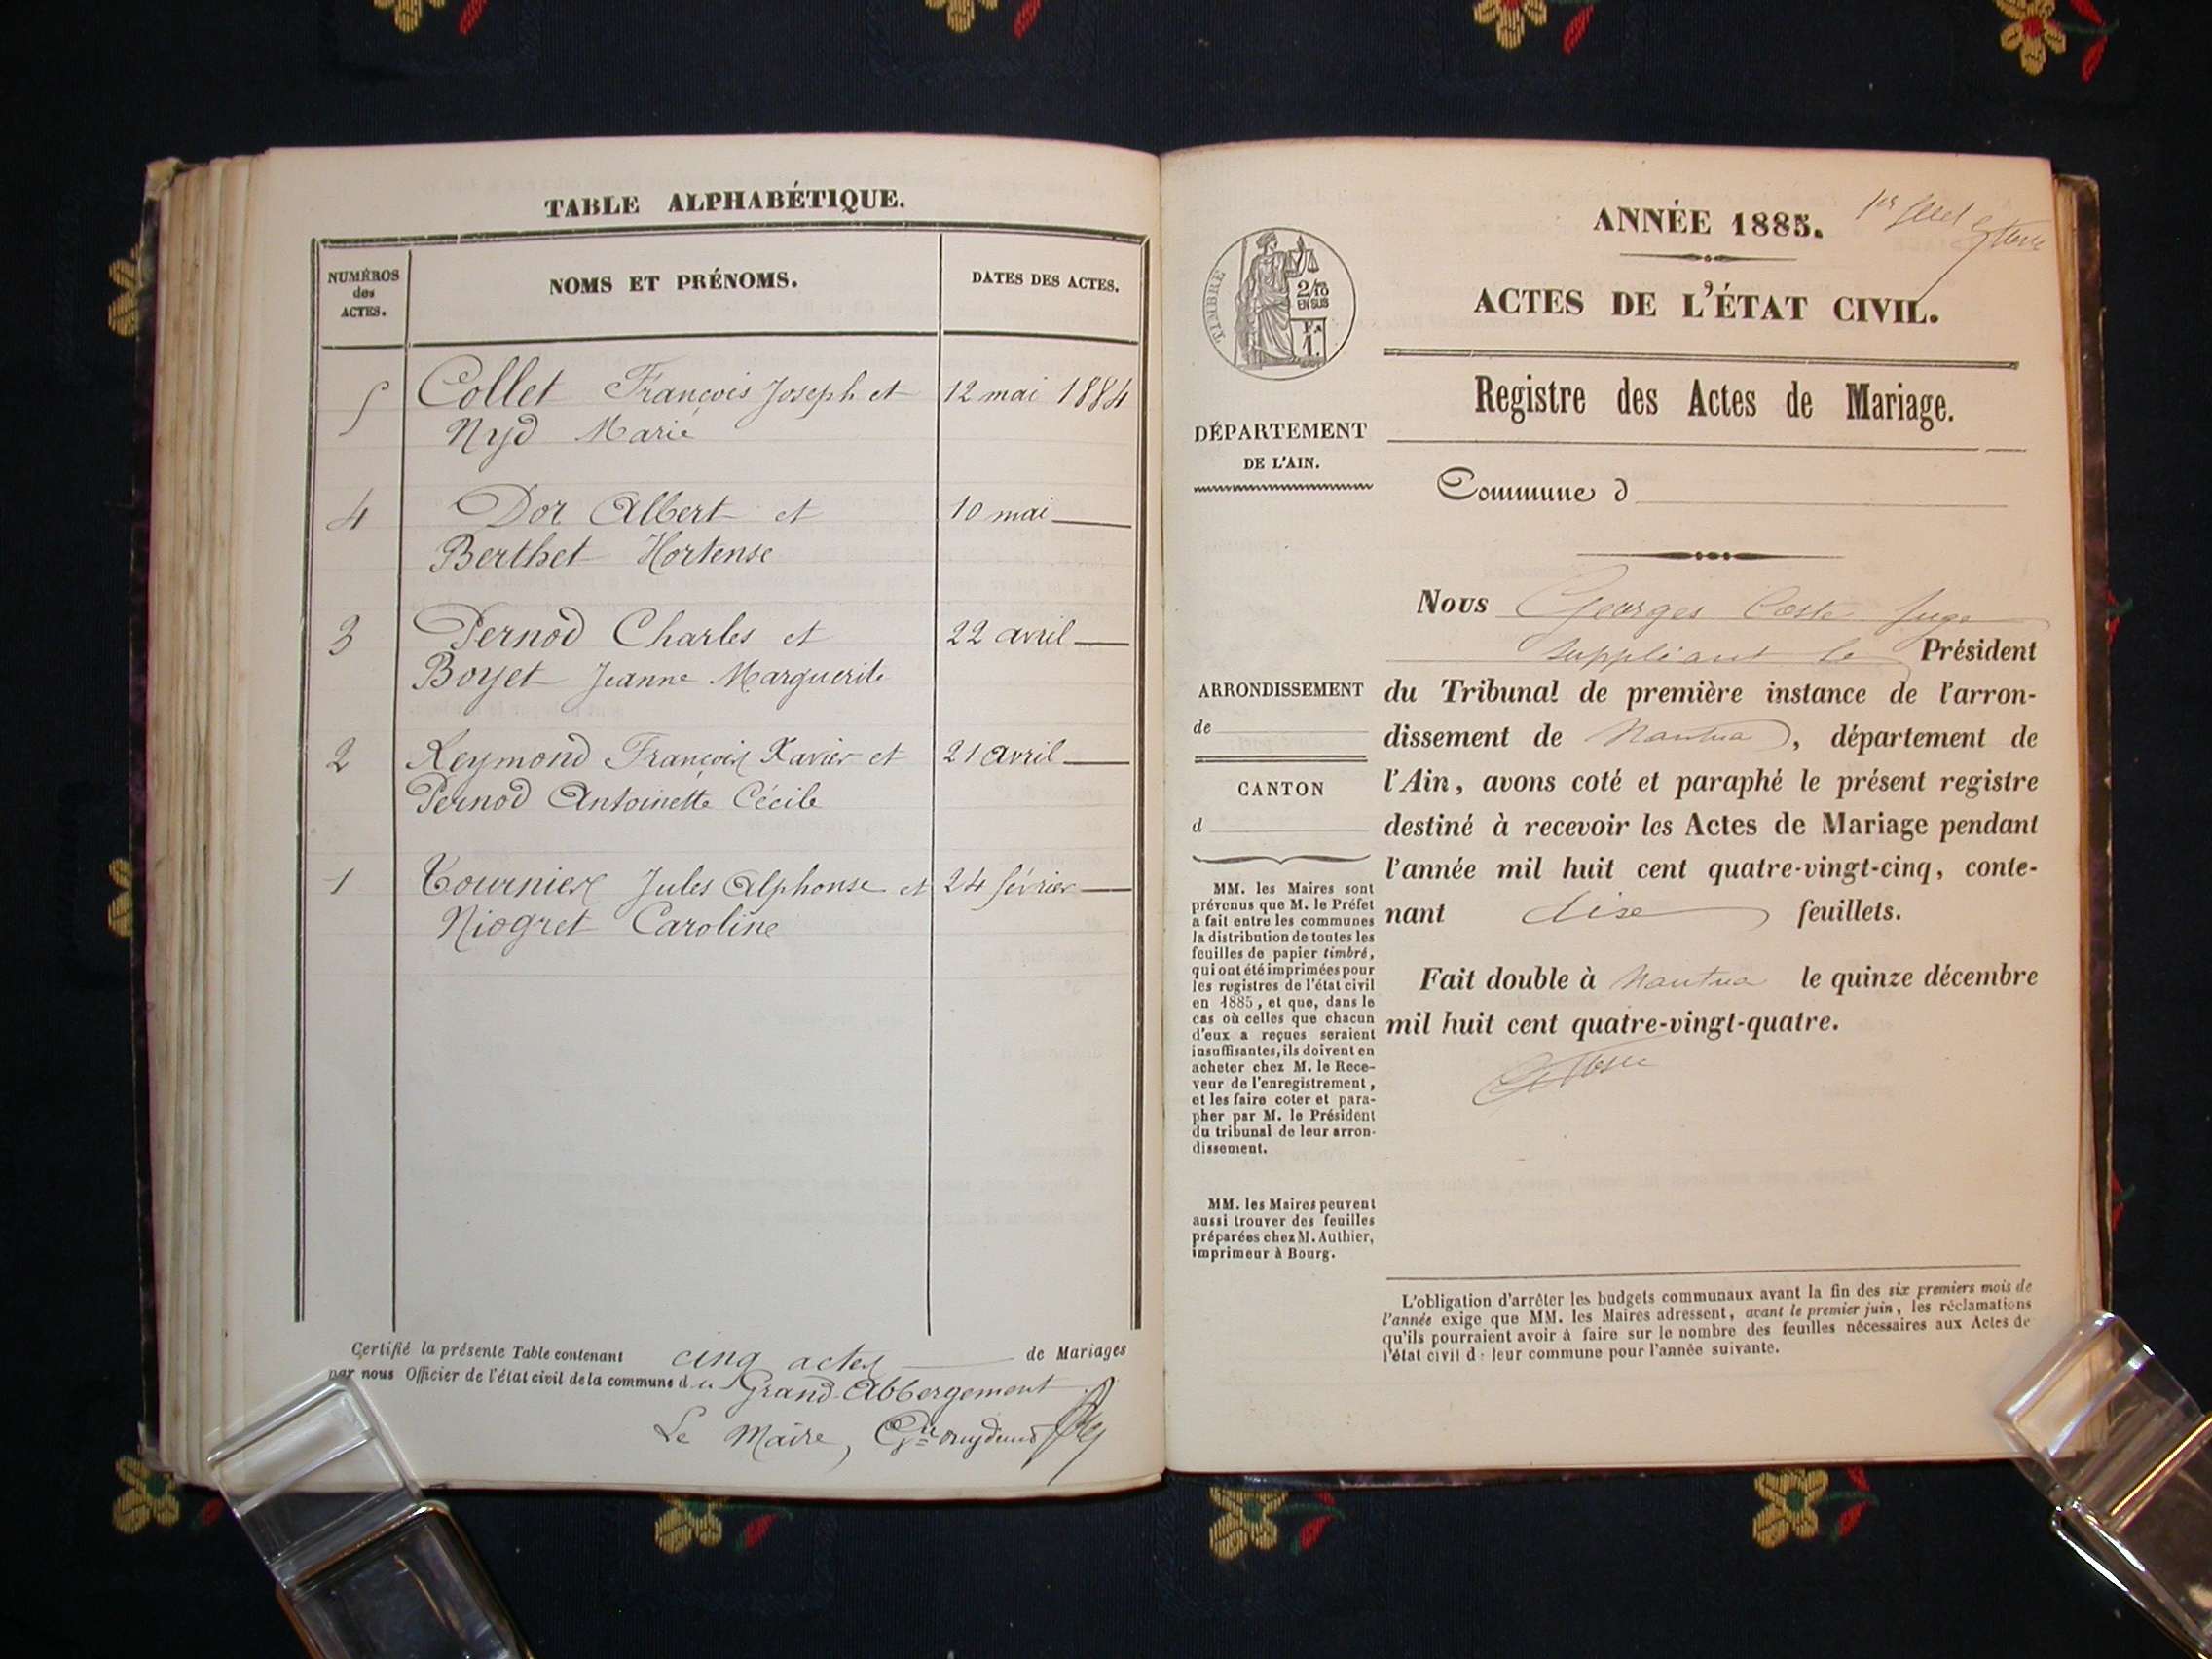 TABLE ALPHABÉTIQUE.
NUMÉROS
des
ACTES.
NOMS ET PRÉNOMS.
DATES DES ACTES.
5 Collet François Joseph et 12 mai 1884
Nyd Marie
4 Dor Albert et 10 mai
Berthet Hortense
3 Pernod Charles et 22 avril
Boyet Jeanne Marguerite
2 Reymond François Xavier et 21 avril
Pernod Antoinette Cécile
1 Tournier Jules Alphonse et 24 février
Niogret Caroline
Certifié la présente Table contenant cinq actes de Mariages
par nous Officier de l'état civil de la commune du Grand-Abbergement
Le Maire,
ANNÉE 1885.
ACTES DE L'ÉTAT CIVIL.
Registre des Actes de Mariage.
TIMBRE
2/10
EN SUS
1.
DÉPARTEMENT
DE L'AIN.
Commune d
Nous Georges Coste Juge
suppléant le Président
du Tribunal de première instance de l'arron-
dissement de Nantua, département de
l'Ain, avons coté et paraphé le présent registre
destiné à recevoir les Actes de Mariage pendant
l'année mil huit cent quatre-vingt-cinq, conte-
nant feuillets.
Fait double à Nantua le quinze décembre
mil huit cent quatre-vingt-quatre.
ARRONDISSEMENT
de
CANTON
d
MM. les Maires sont
prévenus que M. le Préfet
a fait entre les communes
la distribution de toutes les
feuilles de papier timbré,
qui ont été imprimées pour
les registres de l'état civil
en 1885, et que, dans le
cas où celles que chacun
d'eux a reçues seraient
insuffisantes, ils doivent en
acheter chez M. le Rece-
veur de l'enregistrement,
et les faire coter et para-
pher par M. le Président
du tribunal de leur arron-
dissement.
MM. les Maires peuvent
aussi trouver des feuilles
préparées chez M. Authier,
imprimeur à Bourg.
L'obligation d'arrêter les budgets communaux avant la fin des six premiers mois de
l'année exige que MM. les Maires adressent, avant le premier juin, les réclamations
qu'ils pourraient avoir à faire sur le nombre des feuilles nécessaires aux Actes de
l'état civil de leur commune pour l'année suivante.